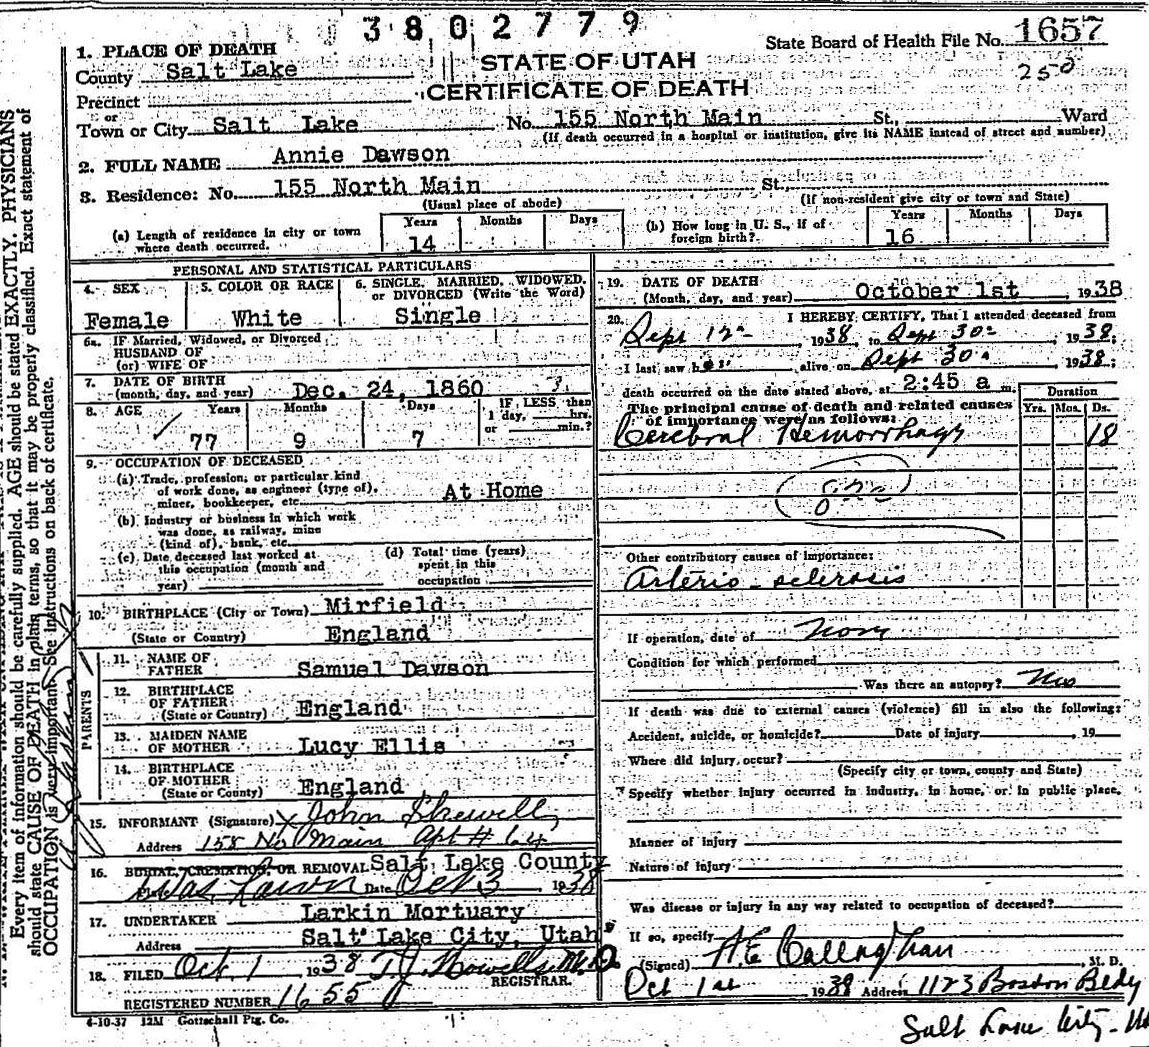 3802779
State Board of Health File No. 1657
250
STATE OF UTAH
CERTIFICATE OF DEATH
1. PLACE OF DEATH
County Salt Lake
Precinct
or
Town or City Salt Lake No. 155 North Main St., Ward
(If death occurred in a hospital or institution, give its NAME instead of street and number)
2. FULL NAME Annie Dawson
3. Residence: No. 155 North Main St.,
(Usual place of abode) (If non-resident give city or town and State)
(a) Length of residence in city or town where death occurred. Years 14 Months Days
(b) How long in U. S., if of foreign birth? Years 16 Months Days
PERSONAL AND STATISTICAL PARTICULARS
4. SEX Female
5. COLOR OR RACE White
6. SINGLE, MARRIED, WIDOWED, or DIVORCED (Write the Word) Single
6a. IF Married, Widowed, or Divorced
HUSBAND OF
(or) WIFE OF
7. DATE OF BIRTH
(month, day, and year) Dec. 24, 1860
8. AGE Years 77 Months 9 Days 7 IF LESS than 1 day, hrs. or min.?
9. OCCUPATION OF DECEASED
(a) Trade, profession, or particular kind
of work done, as engineer (type of),
miner, bookkeeper, etc. At Home
(b) Industry or business in which work
was done, as railway, mine
(kind of), bank, etc.
(c) Date deceased last worked at
this occupation (month and
year)
(d) Total time (years)
spent in this
occupation
10. BIRTHPLACE (City or Town) Mirfield
(State or Country) England
PARENTS
11. NAME OF
FATHER Samuel Dawson
12. BIRTHPLACE
OF FATHER
(State or Country) England
13. MAIDEN NAME
OF MOTHER Lucy Ellis
14. BIRTHPLACE
OF MOTHER
(State or Country) England
15. INFORMANT (Signature) x John Skewell
Address 155 No Main Apt # 64
16. BURIAL, CREMATION, OR REMOVAL Salt Lake County
Was. Lawn Date Oct 3 1938
17. UNDERTAKER Larkin Mortuary
Address Salt Lake City, Utah
18. FILED Oct 1 1938 T.J. Howells M.D.
REGISTRAR.
REGISTERED NUMBER 1655
4-10-37 12M Gottschall Ptg. Co.
19. DATE OF DEATH
(Month, day, and year) October 1st 1938
20. I HEREBY CERTIFY, That I attended deceased from
Sept 12 1938, to Sept 30 1938;
I last saw her alive on Sept 30 1938;
death occurred on the date stated above, at 2:45 a m.
The principal cause of death and related causes
of importance were as follows:
Duration
Yrs. Mos. Ds.
Cerebral Hemorrhage 18
Other contributory causes of importance:
Arterio-sclerosis
If operation, date of None
Condition for which performed
Was there an autopsy? No
If death was due to external causes (violence) fill in also the following:
Accident, suicide, or homicide? Date of injury , 19
Where did injury occur?
(Specify city or town, county and State)
Specify whether injury occurred in industry, in home, or in public place.
Manner of injury
Nature of injury
Was disease or injury in any way related to occupation of deceased?
If so, specify
(Signed) A.E. Callaghan, M. D.
Oct 1st 1938 Address 1123 Boston Bldg
Salt Lake City - Ut
Every item of information should be carefully supplied. AGE should be stated EXACTLY. PHYSICIANS
should state CAUSE OF DEATH in plain terms, so that it may be properly classified. Exact statement of
OCCUPATION is very important. See instructions on back of certificate.